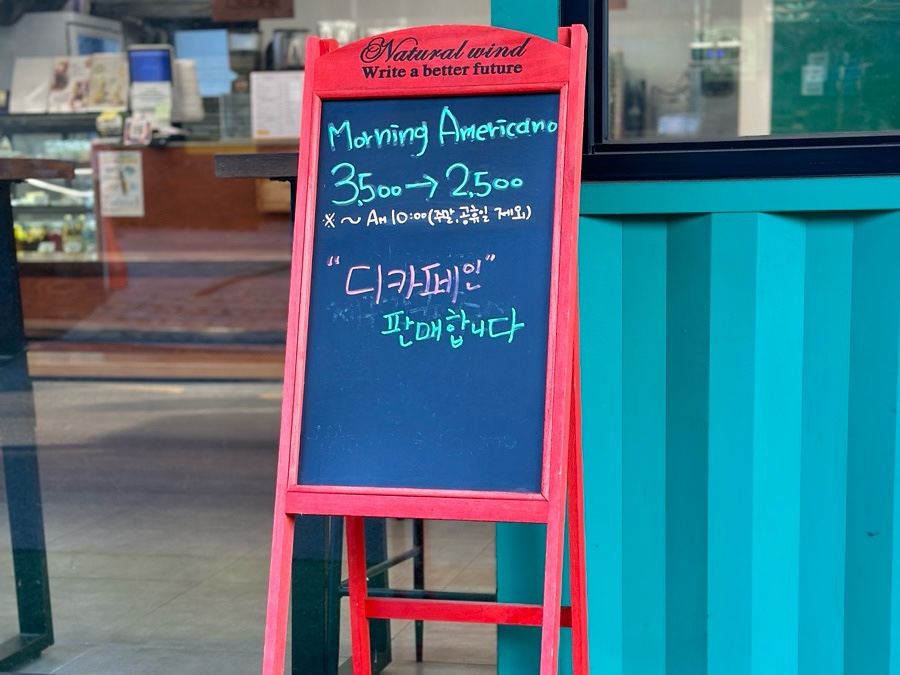 Natural wind
Write a better future
Morning Americano
3,500→2,500
※ ~ AM 10:00 (주말,공휴일 제외)
"디카페인"
판매합니다